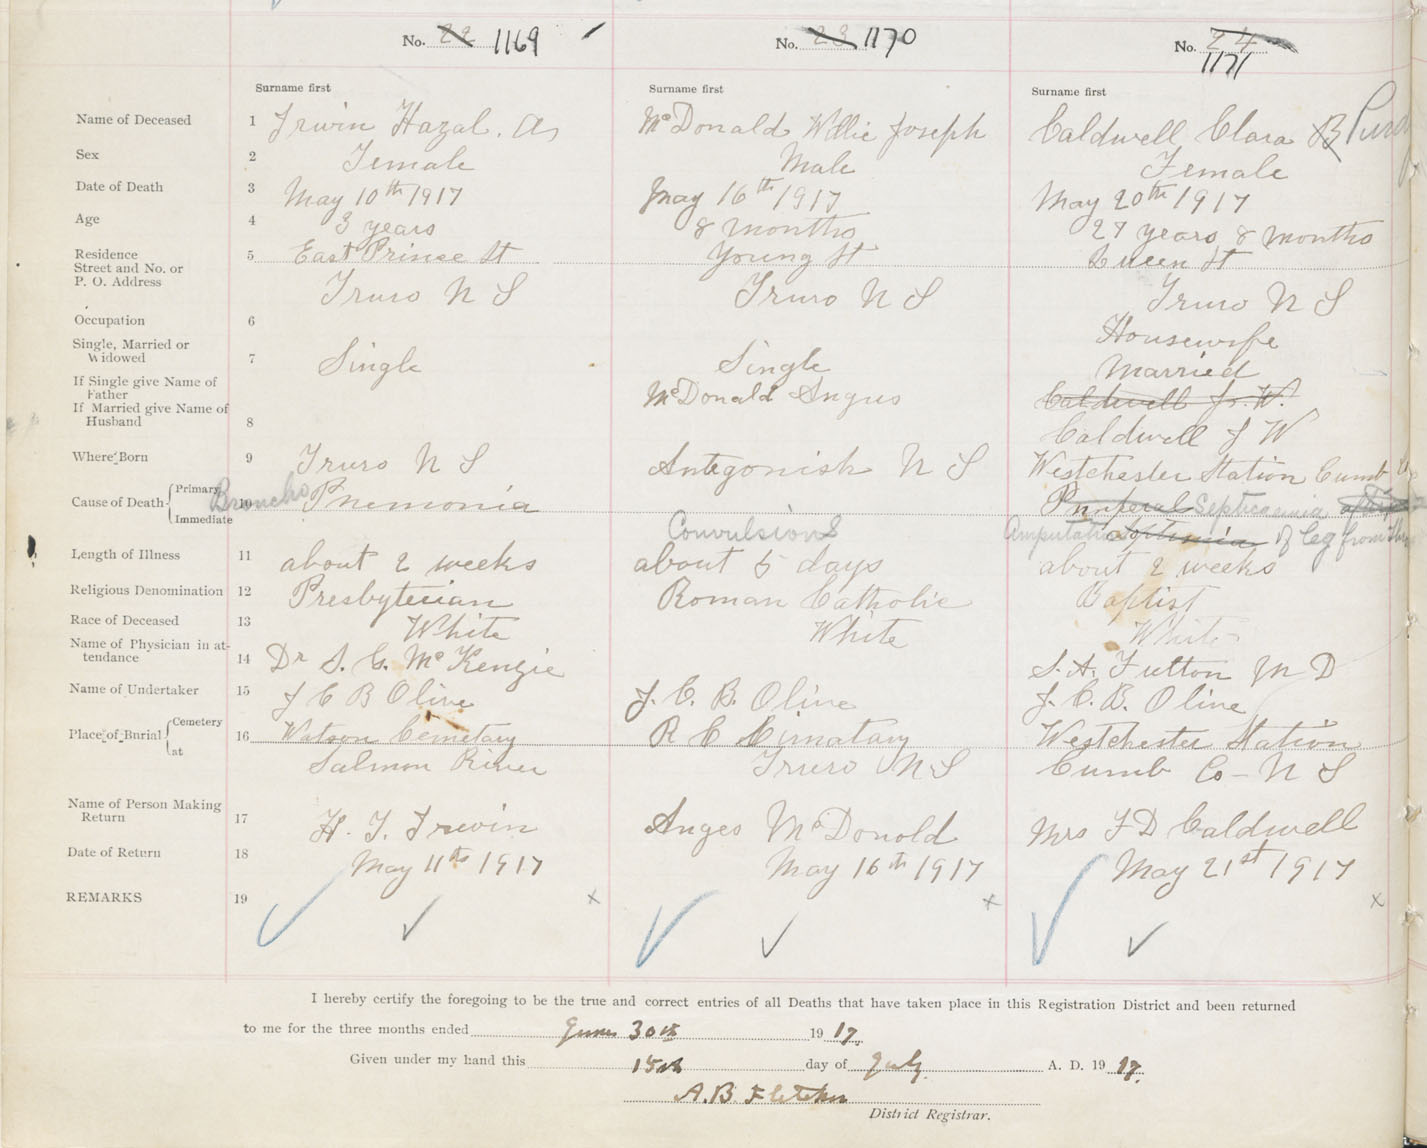 No. 22 1169
No. 23 1170
No. 24
1171
Surname first
Surname first
Surname first
Name of Deceased 1 Irwin Hazal. A. McDonald Willie Joseph Caldwell Clara B
Sex 2 Female Male Female
Date of Death 3 May 10th 1917 May 16th 1917 May 20th 1917
Age 4 3 years 8 months 27 years 8 months
Residence 5 East Prince St Young St Queen St
Street and No. or
P. O. Address Truro N S Truro N S Truro N S
Occupation 6 Housewife
Single, Married or
Widowed 7 Single Single Married
If Single give Name of
Father McDonald Angus Caldwell J. W.
If Married give Name of
Husband 8 Caldwell J W
Where Born 9 Truro N S Antegonish N S Westchester Station Cumb
Cause of Death Primary 10 Broncho Pnemonia Septicaemia
Immediate Convulsions Amputation of leg from
Length of Illness 11 about 2 weeks about 5 days about 2 weeks
Religious Denomination 12 Presbyterian Roman Catholic Baptist
Race of Deceased 13 White White White
Name of Physician in at-
tendance 14 Dr S. G. McKenzie S. A. Fulton M D
Name of Undertaker 15 J C B Olive J. C. B. Olive J. C. B. Olive
Place of Burial Cemetery 16 Watson Cemetary R C Cimatary Westchester Station
at Salmon River Truro N S Cumb Co - N S
Name of Person Making
Return 17 H. T. Irwin Anges McDonold Mrs F D Caldwell
Date of Return 18 May 11th 1917 May 16th 1917 May 21st 1917
REMARKS 19 x x x
I hereby certify the foregoing to be the true and correct entries of all Deaths that have taken place in this Registration District and been returned
to me for the three months ended June 30th 1917.
Given under my hand this 15th day of July A. D. 1917.
A. B. Fletcher
District Registrar.